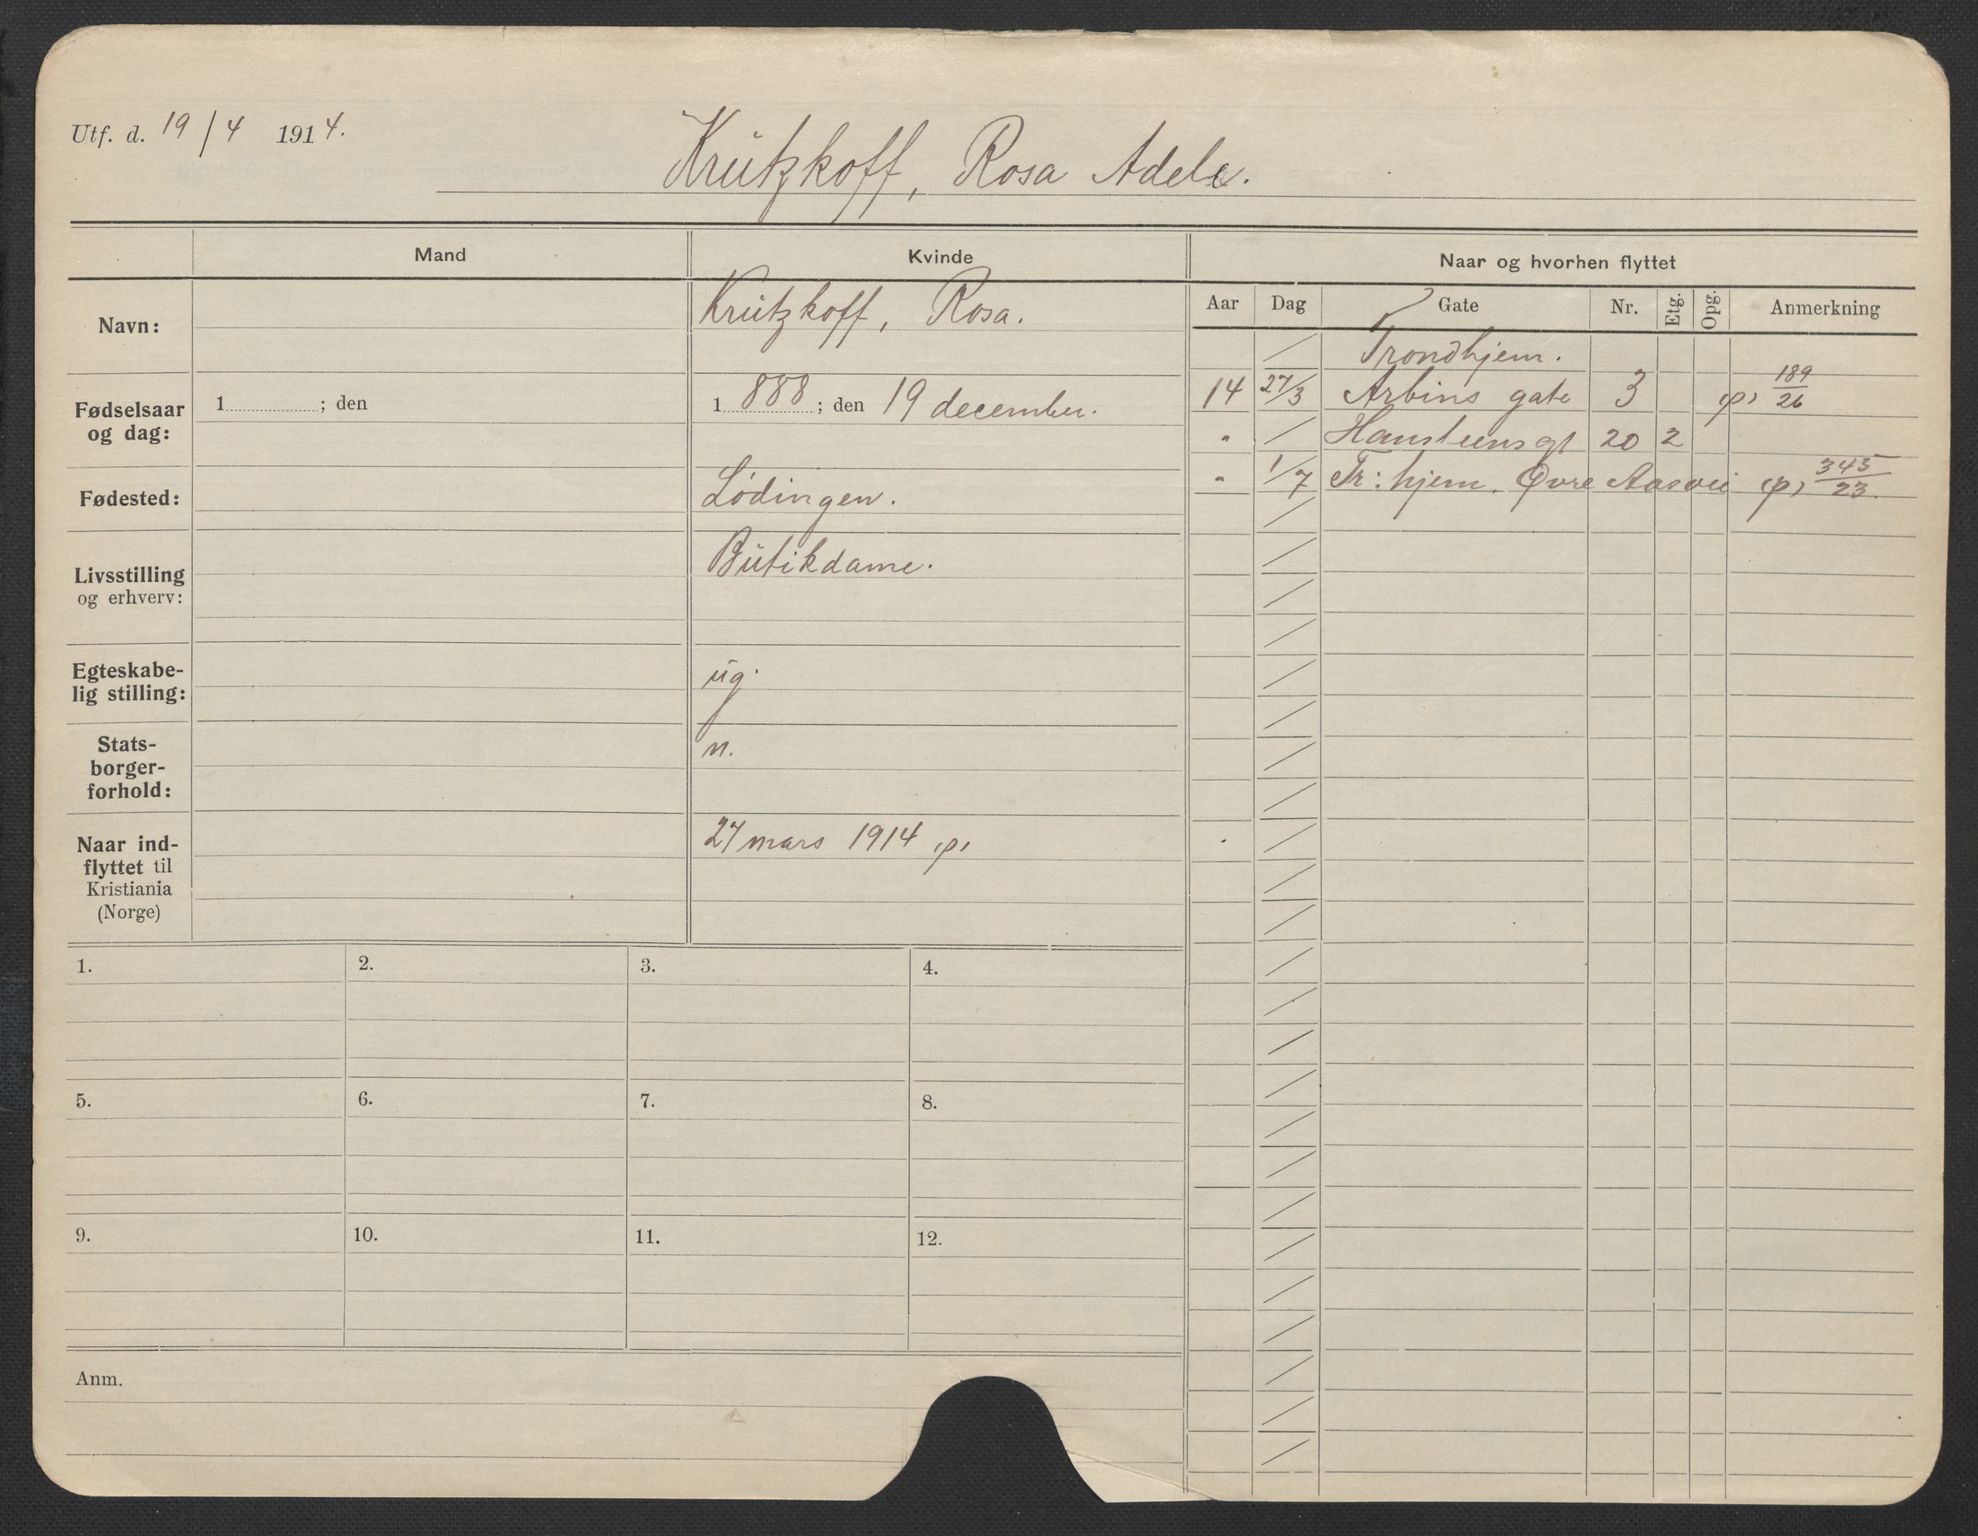 Utf. d. 19/4 1914.
Krutzkoff, Rosa Adele.
Mand
Kvinde
Naar og hvorhen flyttet
Aar Dag Gate Nr. Etg. Opg. Anmerkning
Navn:
Krutzkoff, Rosa.
Fødselsaar og dag:
1 ; den
1888; den 19 december.
Fødested:
Lødingen.
Livsstilling og erhverv:
Butikdame.
Egteskabe-
lig stilling:
ug.
Stats-
borger-
forhold:
n.
Naar ind-
flyttet til
Kristiania
(Norge)
27 mars 1914 p,
/ Trondhjem.
14 27/3 Arbins gate 3 p, 189/26
" / Hansteens gt 20 2
" 1/7 Tr:hjem. Øvre Aasvei p, 345/23.
1. 2. 3. 4.
5. 6. 7. 8.
9. 10. 11. 12.
Anm.